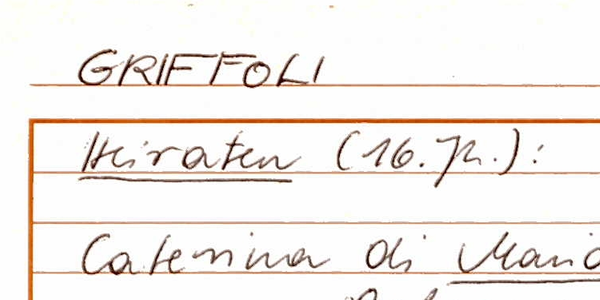 GRIFFOLI
Heiraten (16. Jh.):
Caterina di